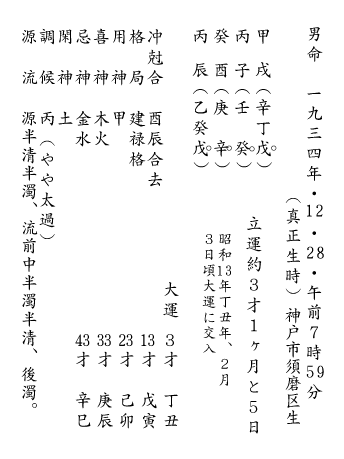 男命　一九三四年・12・28・午前7時59分
（真正生時）神戸市須磨区生
甲　戌（辛丁戊。）
丙　子（壬　癸。）
癸　酉（庚　辛。）
丙　辰（乙癸戊。）
立運約3才1ヶ月と5日
昭和13年丁丑年、2月
3日頃大運に交入
大運　3才　丁丑
13才　戊寅
23才　己卯
33才　庚辰
43才　辛巳
冲尅合　酉辰合去
格局　建禄格
用神　甲
喜神　木火
忌神　金水
閑神　土
調候　丙（やや太過）
源流　源半清半濁、流前中半濁半清、後濁。